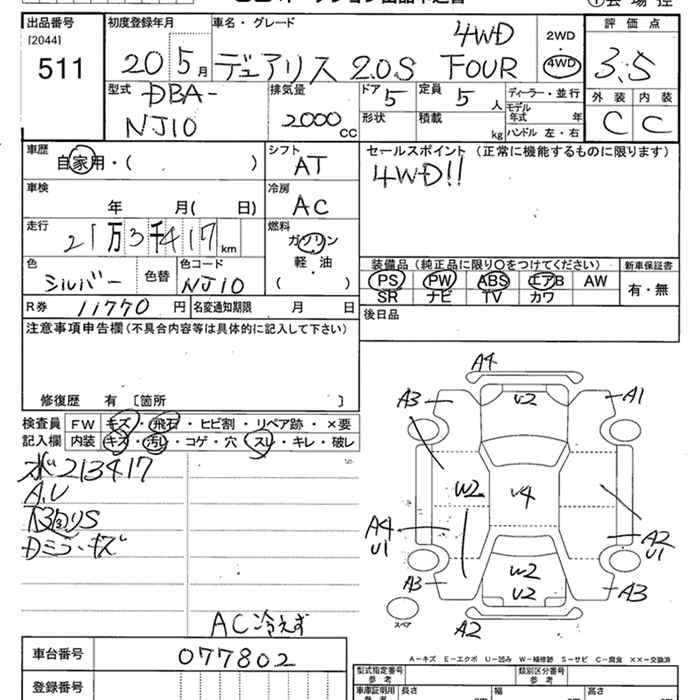 出品番号
[2044]
511
初度登録年月
20 5月
車名・グレード
デュアリス 2.0S FOUR
4WD
2WD
4WD
評価点
3.5
外装 内装
C C
型式
DBA-
NJ10
排気量
2000cc
ドア 5
定員 5人
形状
積載 kg
ディーラー・並行
モデル年式 年
ハンドル 左・右
車歴
自家用・( )
シフト
AT
セールスポイント (正常に機能するものに限ります)
4WD!!
車検
年 月( 日)
冷房
AC
走行
21万3千417km
燃料
ガソリン
軽・油
( )
色
シルバー
色替
色コード
NJ10
装備品 (純正品に限り○をつけてください)
PS PW ABS エアB AW
SR ナビ TV カワ
新車保証書
有・無
R券 11770円
名変通知期限 月 日
後日品
注意事項申告欄(不具合内容等は具体的に記入して下さい)
修復歴 有 〔箇所 〕
検査員
記入欄
FW キズ・飛石・ヒビ割・リペア跡・×要
内装 キズ・汚レ・コゲ・穴・スレ・キレ・破レ
213417
A.U
Dミラーキズ
AC冷えず
A4
A3
U2
A1
W2
U4
A4
U1
A2
U1
A3
W2
U2
A3
A2
スペア
A-キズ E-エクボ U-凹み W-補修跡 S-サビ C-腐食 ××-交換済
車台番号
077802
登録番号
型式指定番号
参考
類別区分番号
参考
車庫証明用
参考
長さ
幅
高さ